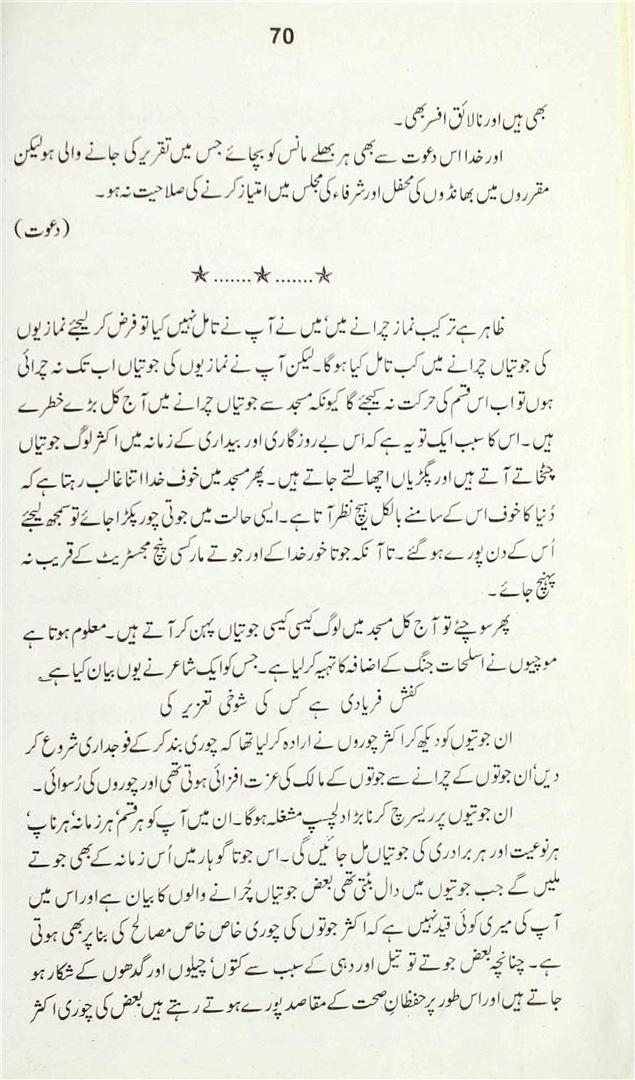 70
بھی ہیں اور نالائق افسر بھی۔
اور خدا اس دعوت سے بھی ہر بھلے مانس کو بچائے جس میں تقریر کی جانے والی ہو لیکن
مقرروں میں بھانڈوں کی محفل اور شرفاء کی مجلس میں امتیاز کرنے کی صلاحیت نہ ہو۔
(دعوت)
★.......★.......★
ظاہر ہے ترکیب نماز چرانے میں، میں نے آپ نے تامل نہیں کیا تو فرض کر لیجئے نمازیوں
کی جوتیاں چرانے میں کب تامل کیا ہو گا۔ لیکن آپ نے نمازیوں کی جوتیاں اب تک نہ چرائی
ہوں تو اب اس قسم کی حرکت نہ کیجئے گا کیونکہ مسجد سے جوتیاں چرانے میں آج کل بڑے خطرے
ہیں۔ اس کا سبب ایک تو یہ ہے کہ اس بے روزگاری اور بیداری کے زمانہ میں اکثر لوگ جوتیاں
چٹخاتے آتے ہیں اور پگڑیاں اچھالتے جاتے ہیں۔ پھر مسجد میں خوف خدا اتنا غالب رہتا ہے کہ
دُنیا کا خوف اس کے سامنے بالکل ہیچ نظر آتا ہے۔ ایسی حالت میں جوتی چور پکڑا جائے تو سمجھ لیجئے
اُس کے دن پورے ہو گئے۔ تا آنکہ جوتا خور خدا کے اور جوتے مار کسی پنچ مجسٹریٹ کے قریب نہ
پہنچ جائے۔
پھر سوچئے تو آج کل مسجد میں لوگ کیسی کیسی جوتیاں پہن کر آتے ہیں۔ معلوم ہوتا ہے
موچیوں نے اسلحات جنگ کے اضافہ کا تہیہ کر لیا ہے۔ جس کو ایک شاعر نے یوں بیان کیا ہے
کفش فریادی ہے کس کی شوخی تعزیر کی
ان جوتیوں کو دیکھ کر اکثر چوروں نے ارادہ کر لیا تھا کہ چوری بند کر کے فوجداری شروع کر
دیں، ان جوتوں کے چرانے سے جوتوں کے مالک کی عزت افزائی ہوتی تھی اور چوروں کی رُسوائی۔
ان جوتیوں پر ریسرچ کرنا بڑا دلچسپ مشغلہ ہو گا۔ ان میں آپ کو ہر قسم، ہر زمانہ، ہر ناپ،
ہر نوعیت اور ہر برادری کی جوتیاں مل جائیں گی۔ اس جوتا گوہار میں اُس زمانہ کے بھی جوتے
ملیں گے جب جوتیوں میں دال بٹتی تھی بعض جوتیاں چُرانے والوں کا بیان ہے اور اس میں
آپ کی میری کوئی قید نہیں ہے کہ اکثر جوتوں کی چوری خاص خاص مصالح کی بنا پر بھی ہوتی
ہے۔ چنانچہ بعض جوتے تو تیل اور دہی کے سبب سے کتوں، چیلوں اور گدھوں کے شکار ہو
جاتے ہیں اور اس طور پر حفظانِ صحت کے مقاصد پورے ہوتے رہتے ہیں بعض کی چوری اکثر